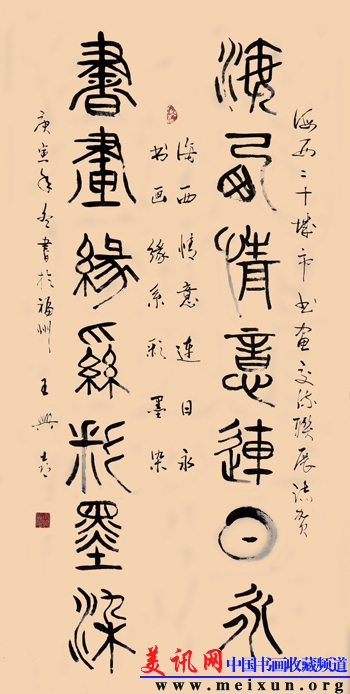 海西二十城市书画交流联展志贺
海西情意連日永
海西情意連日永
书画缘系彩墨染
書畫緣系彩墨染
庚寅年書於福州 王興
美讯网 中国书画收藏频道
www.meixun.org